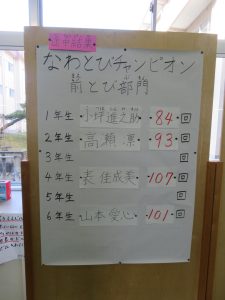 なわとびチャンピオン
前とび部門
1年生 小坪進之助・84・回
2年生 高瀬 凛・93・回
3年生 回
4年生 表 佳成美・107・回
5年生 回
6年生 山本愛心・101・回